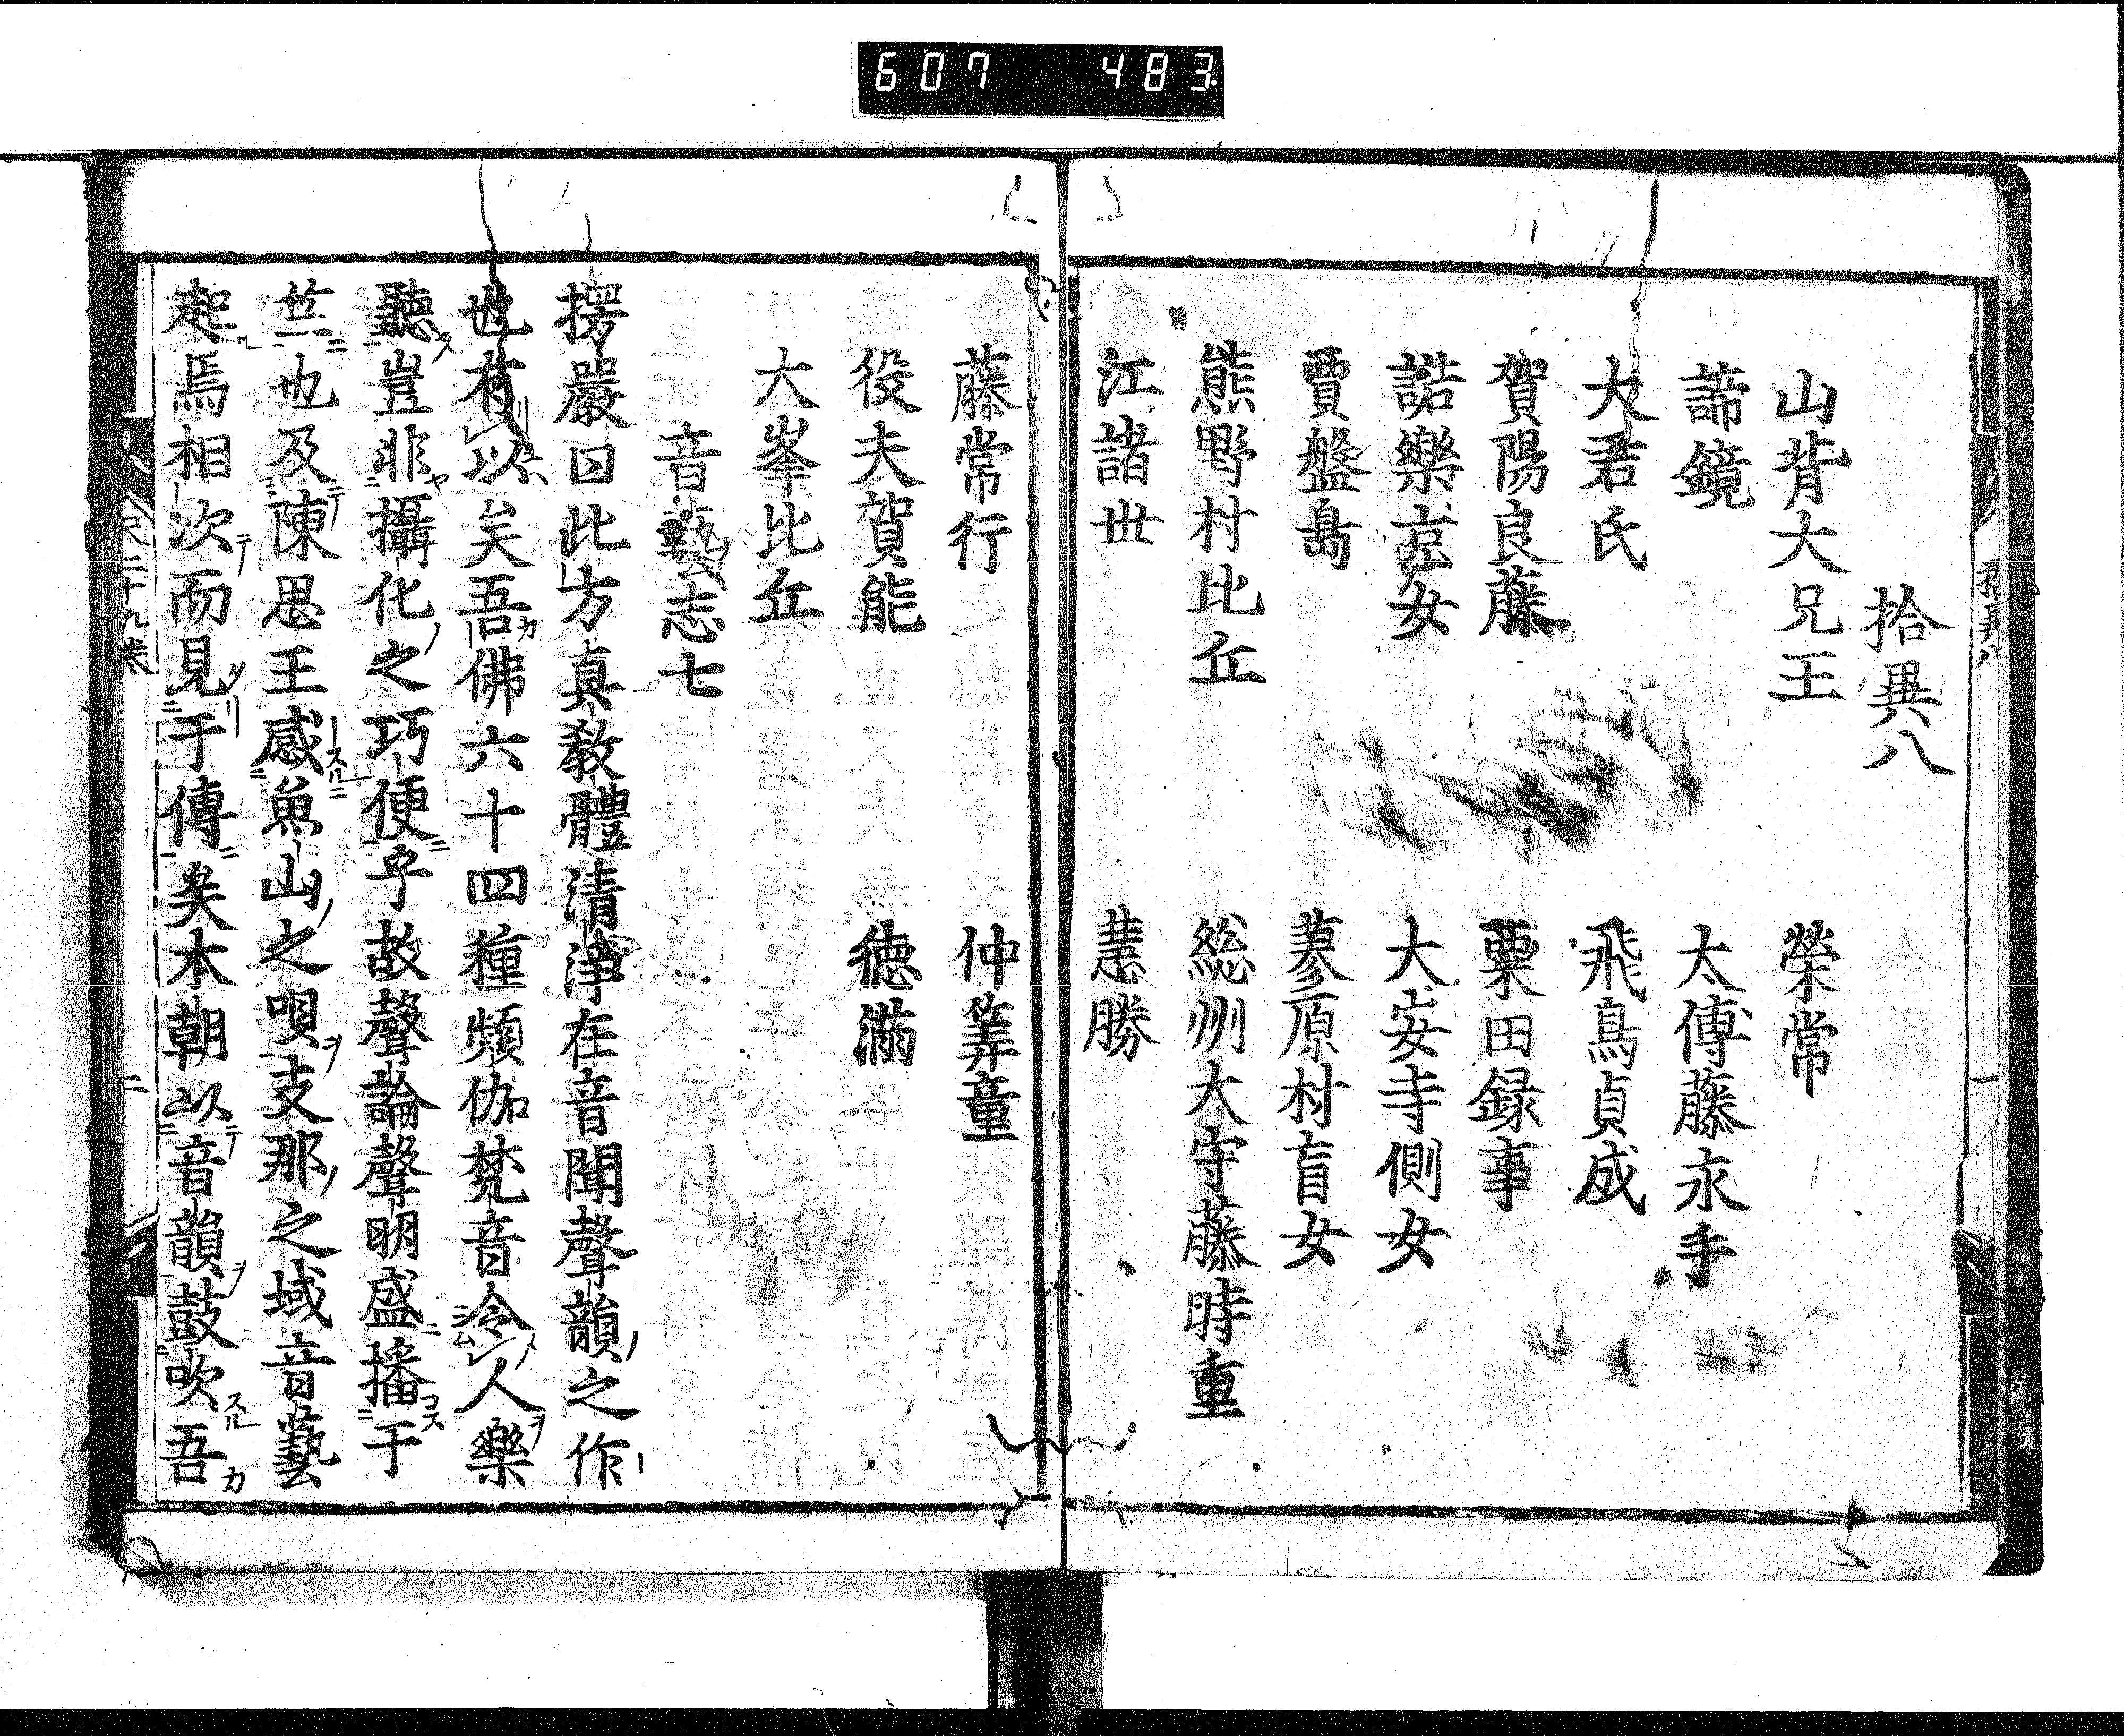 607 483
拾異八
山背大兄王 榮常
諦鏡 太傅藤永手
大君氏 飛鳥貞成
賀陽良藤 粟田録事
諾樂京女 大安寺側女
賈盤島 蓼原村盲女
熊野村比丘 総州大守藤時重
江諸世 慧勝
藤常行 仲筭童
役夫賀能 徳満
大峯比丘
音藝志七
楞嚴曰此方真教體清淨在音聞聲韻之作
也有以矣吾佛六十四種頻伽梵音令人樂
聽豈非攝化之巧便乎故聲論聲明盛播于
竺也及陳思王感魚山之唄支那之域音藝
起焉相次而見于傳矣本朝以音韻鼓吹吾
二十九巻
二